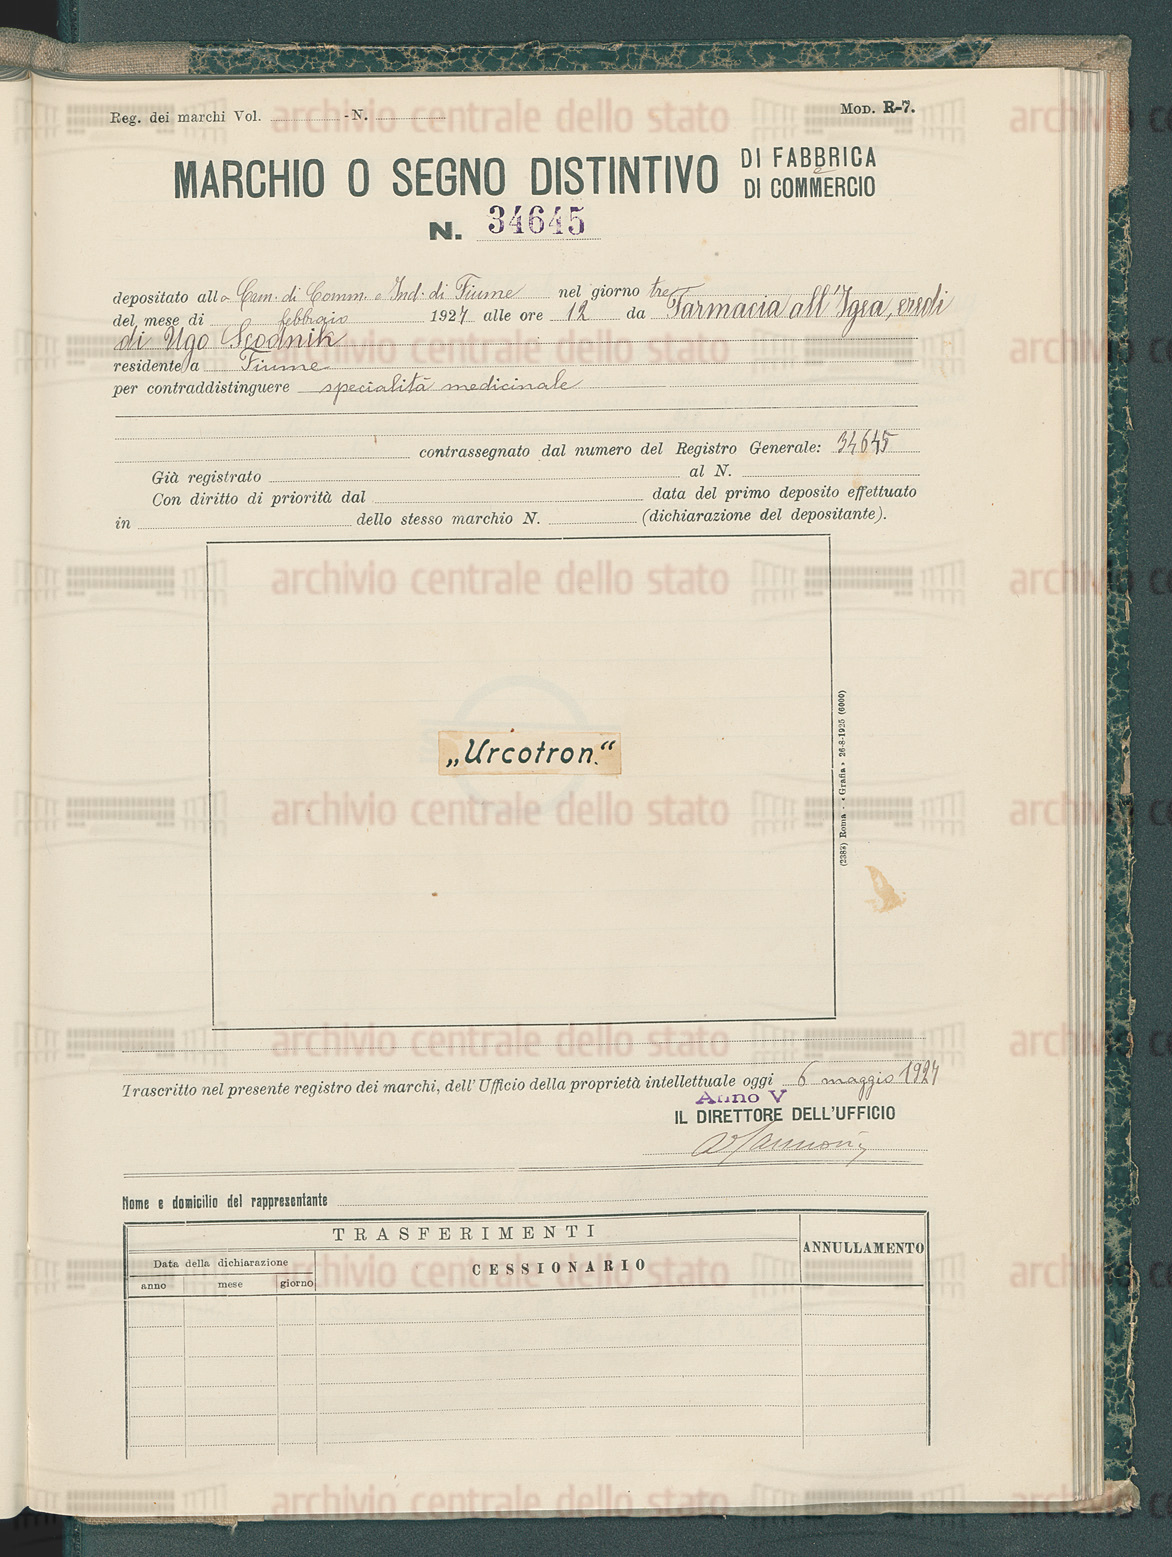 Reg. dei marchi Vol. - N. Mod. R-7.
MARCHIO O SEGNO DISTINTIVO DI FABBRICA e DI COMMERCIO
N. 34645
depositato alla Cam. di Comm. e Ind. di Fiume nel giorno tre
del mese di febbraio 1927 alle ore 12 da Farmacia all'Igea, eredi
di Ugo Scodnik
residente a Fiume
per contraddistinguere specialità medicinale
contrassegnato dal numero del Registro Generale: 34645
Già registrato al N.
Con diritto di priorità dal data del primo deposito effettuato
in dello stesso marchio N. (dichiarazione del depositante).
„Urcotron.“
(2383) Roma - «Grafia» 26-8-1925 (6000)
Trascritto nel presente registro dei marchi, dell'Ufficio della proprietà intellettuale oggi 6 maggio 1927
Anno V
IL DIRETTORE DELL'UFFICIO
Nome e domicilio del rappresentante
TRASFERIMENTI
ANNULLAMENTO
Data della dichiarazione
CESSIONARIO
anno mese giorno
archivio centrale dello stato
archivio centrale dello stato
archivio centrale dello stato
archivio centrale dello stato
archivio centrale dello stato
archivio centrale dello stato
archivio centrale dello stato